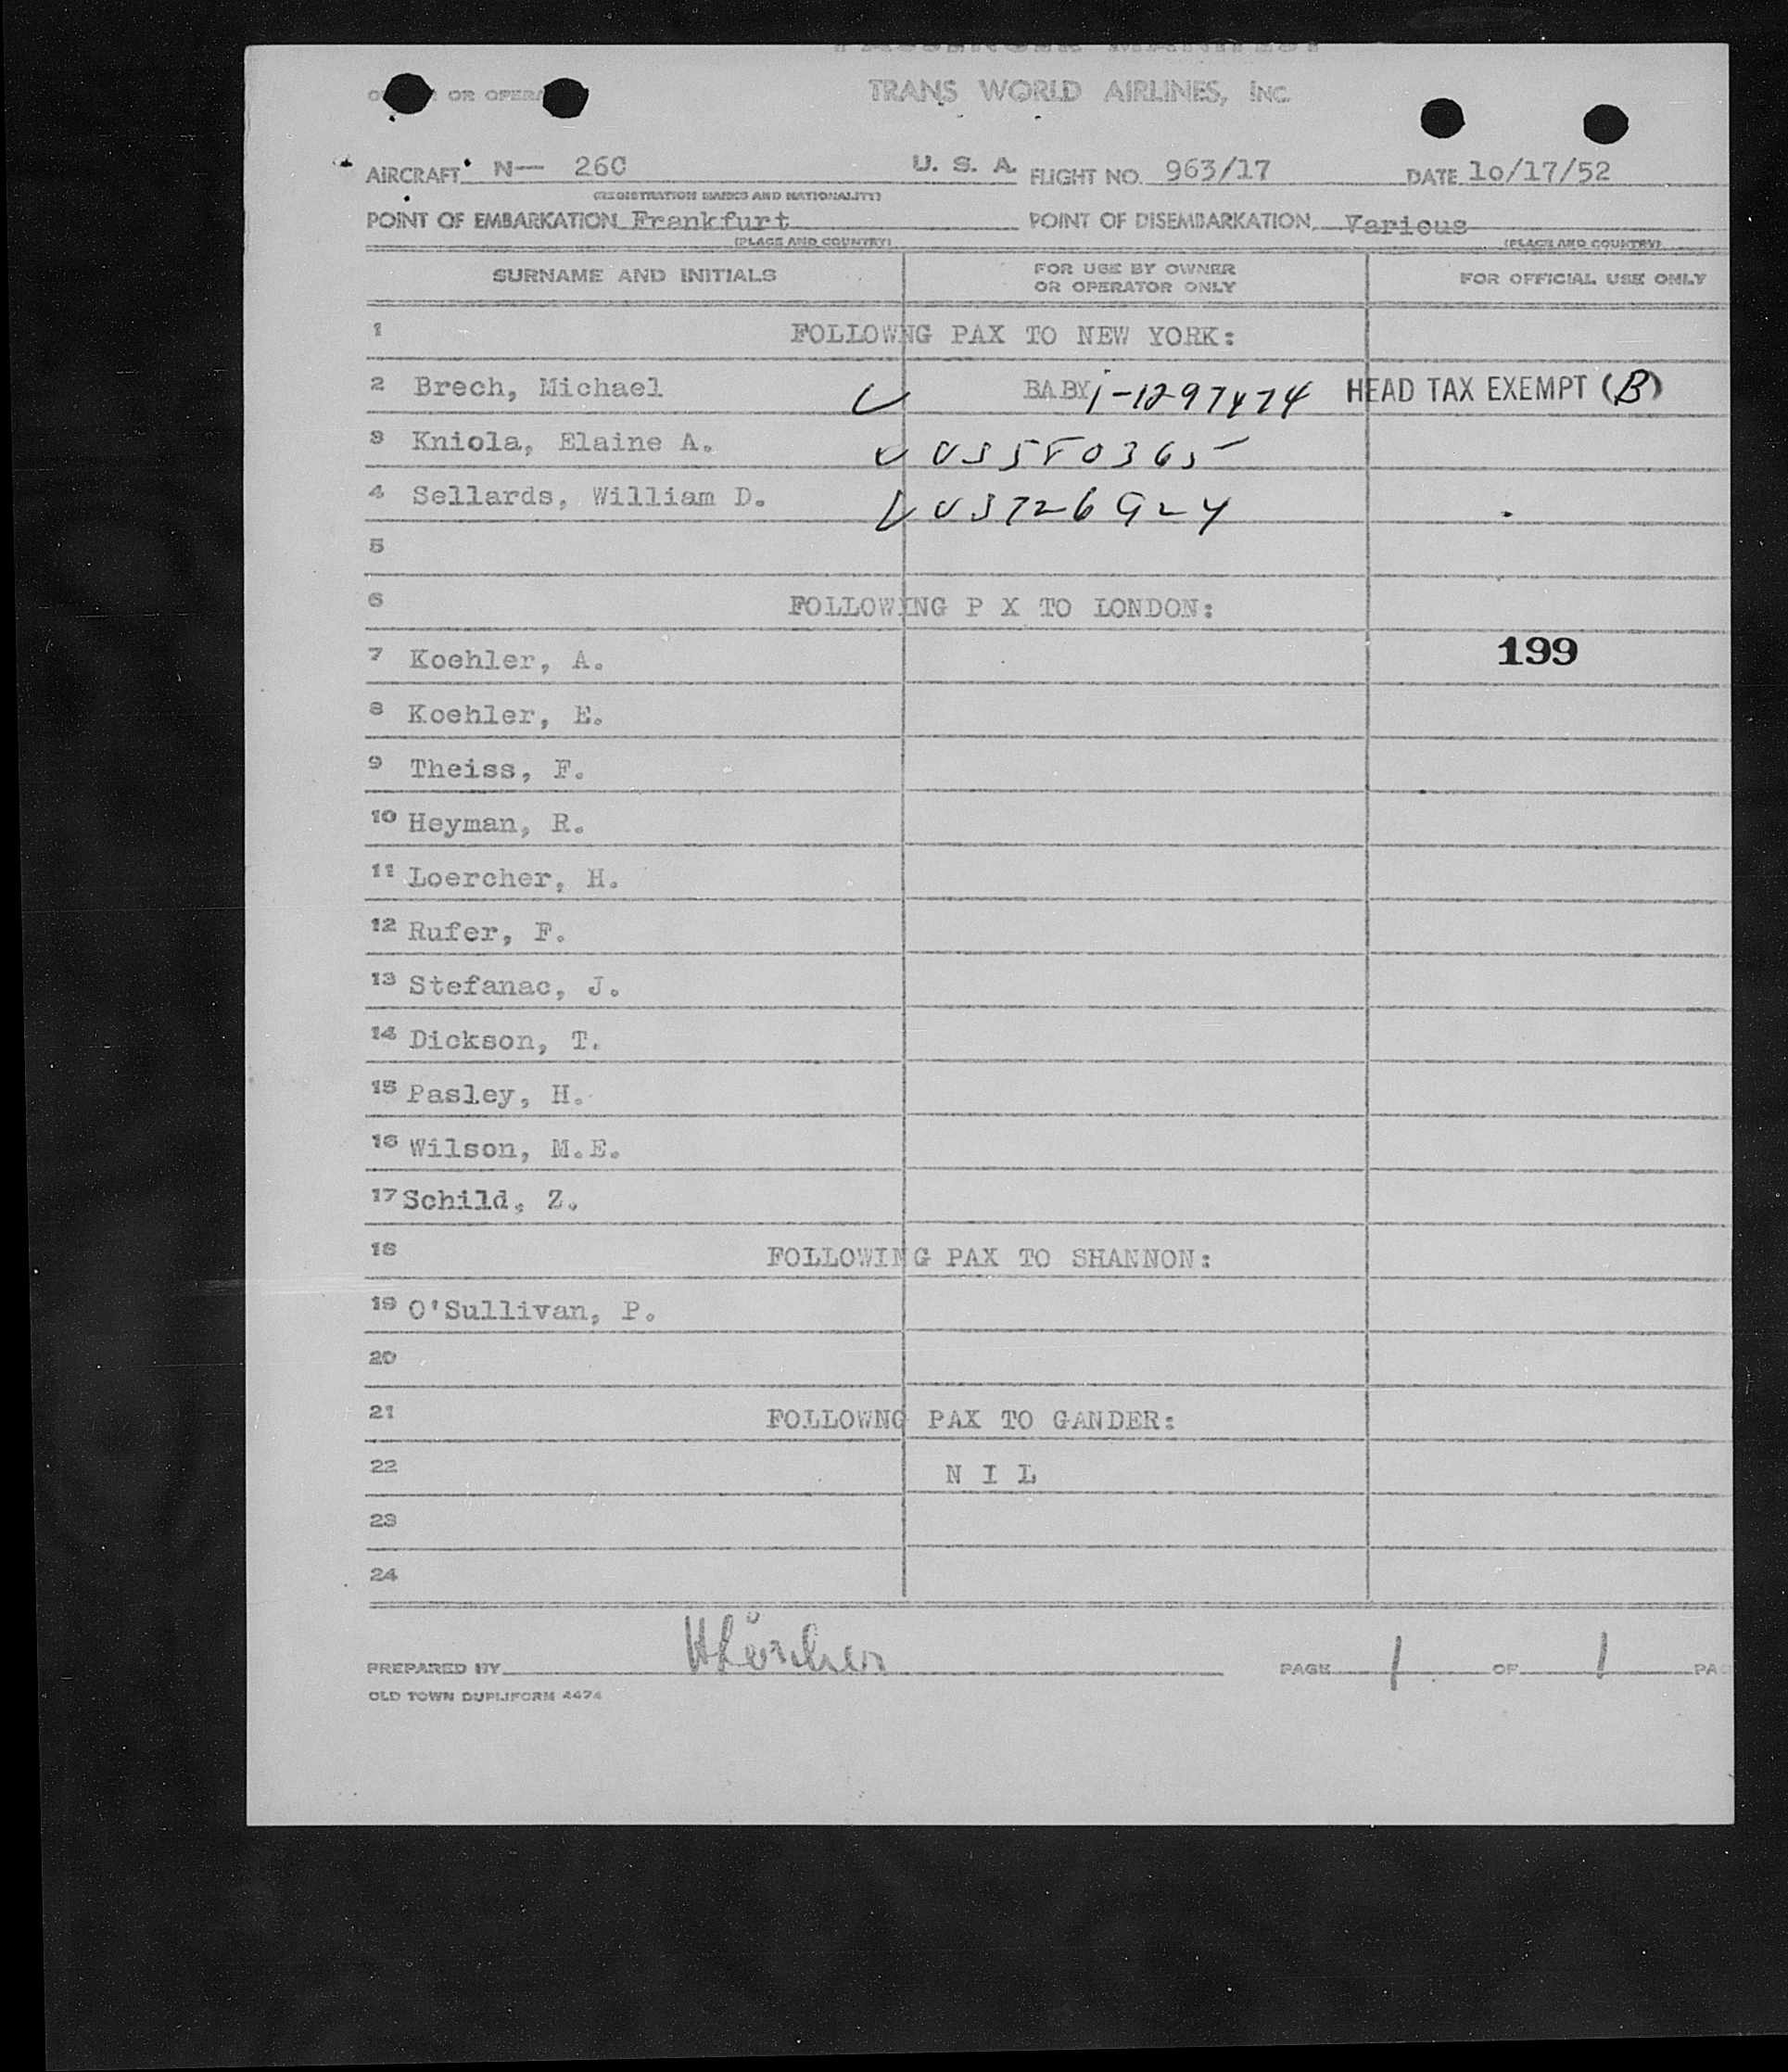 PASSENGER MANIFEST
OR OPERA
TRANS WORLD AIRLINES, INC.
AIRCRAFT N— 26C U. S. A. FLIGHT NO. 963/17 DATE 10/17/52
(REGISTRATION MARKS AND NATIONALITY)
POINT OF EMBARKATION Frankfurt POINT OF DISEMBARKATION Various
(PLACE AND COUNTRY) (PLACE AND COUNTRY)
SURNAME AND INITIALS FOR USE BY OWNER OR OPERATOR ONLY FOR OFFICIAL USE ONLY
1 FOLLOWNG PAX TO NEW YORK:
2 Brech, Michael BABY i-1297474 HEAD TAX EXEMPT (B)
3 Kniola, Elaine A. US580365
4 Sellards, William D. US726924
5
6 FOLLOWING P X TO LONDON:
7 Koehler, A. 199
8 Koehler, E.
9 Theiss, F.
10 Heyman, R.
11 Loercher, H.
12 Rufer, F.
13 Stefanac, J.
14 Dickson, T.
15 Pasley, H.
16 Wilson, M.E.
17 Schild, Z.
18 FOLLOWING PAX TO SHANNON:
19 O'Sullivan, P.
20
21 FOLLOWNG PAX TO GANDER:
22 N I L
23
24
PREPARED BY PAGE 1 OF 1
OLD TOWN DUPLIFORM 4474